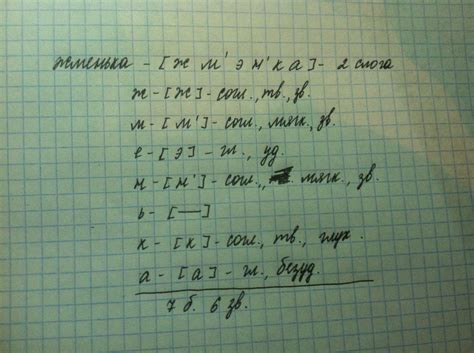 жменька - [ж м' э н' к а] - 2 слога
ж - [ж] - согл., тв., зв.
м - [м'] - согл., мягк., зв.
е - [э] - гл., уд.
н - [н'] - согл., мягк., зв.
ь - [—]
к - [к] - согл., тв., глух.
а - [а] - гл., безуд.
7 б. 6 зв.